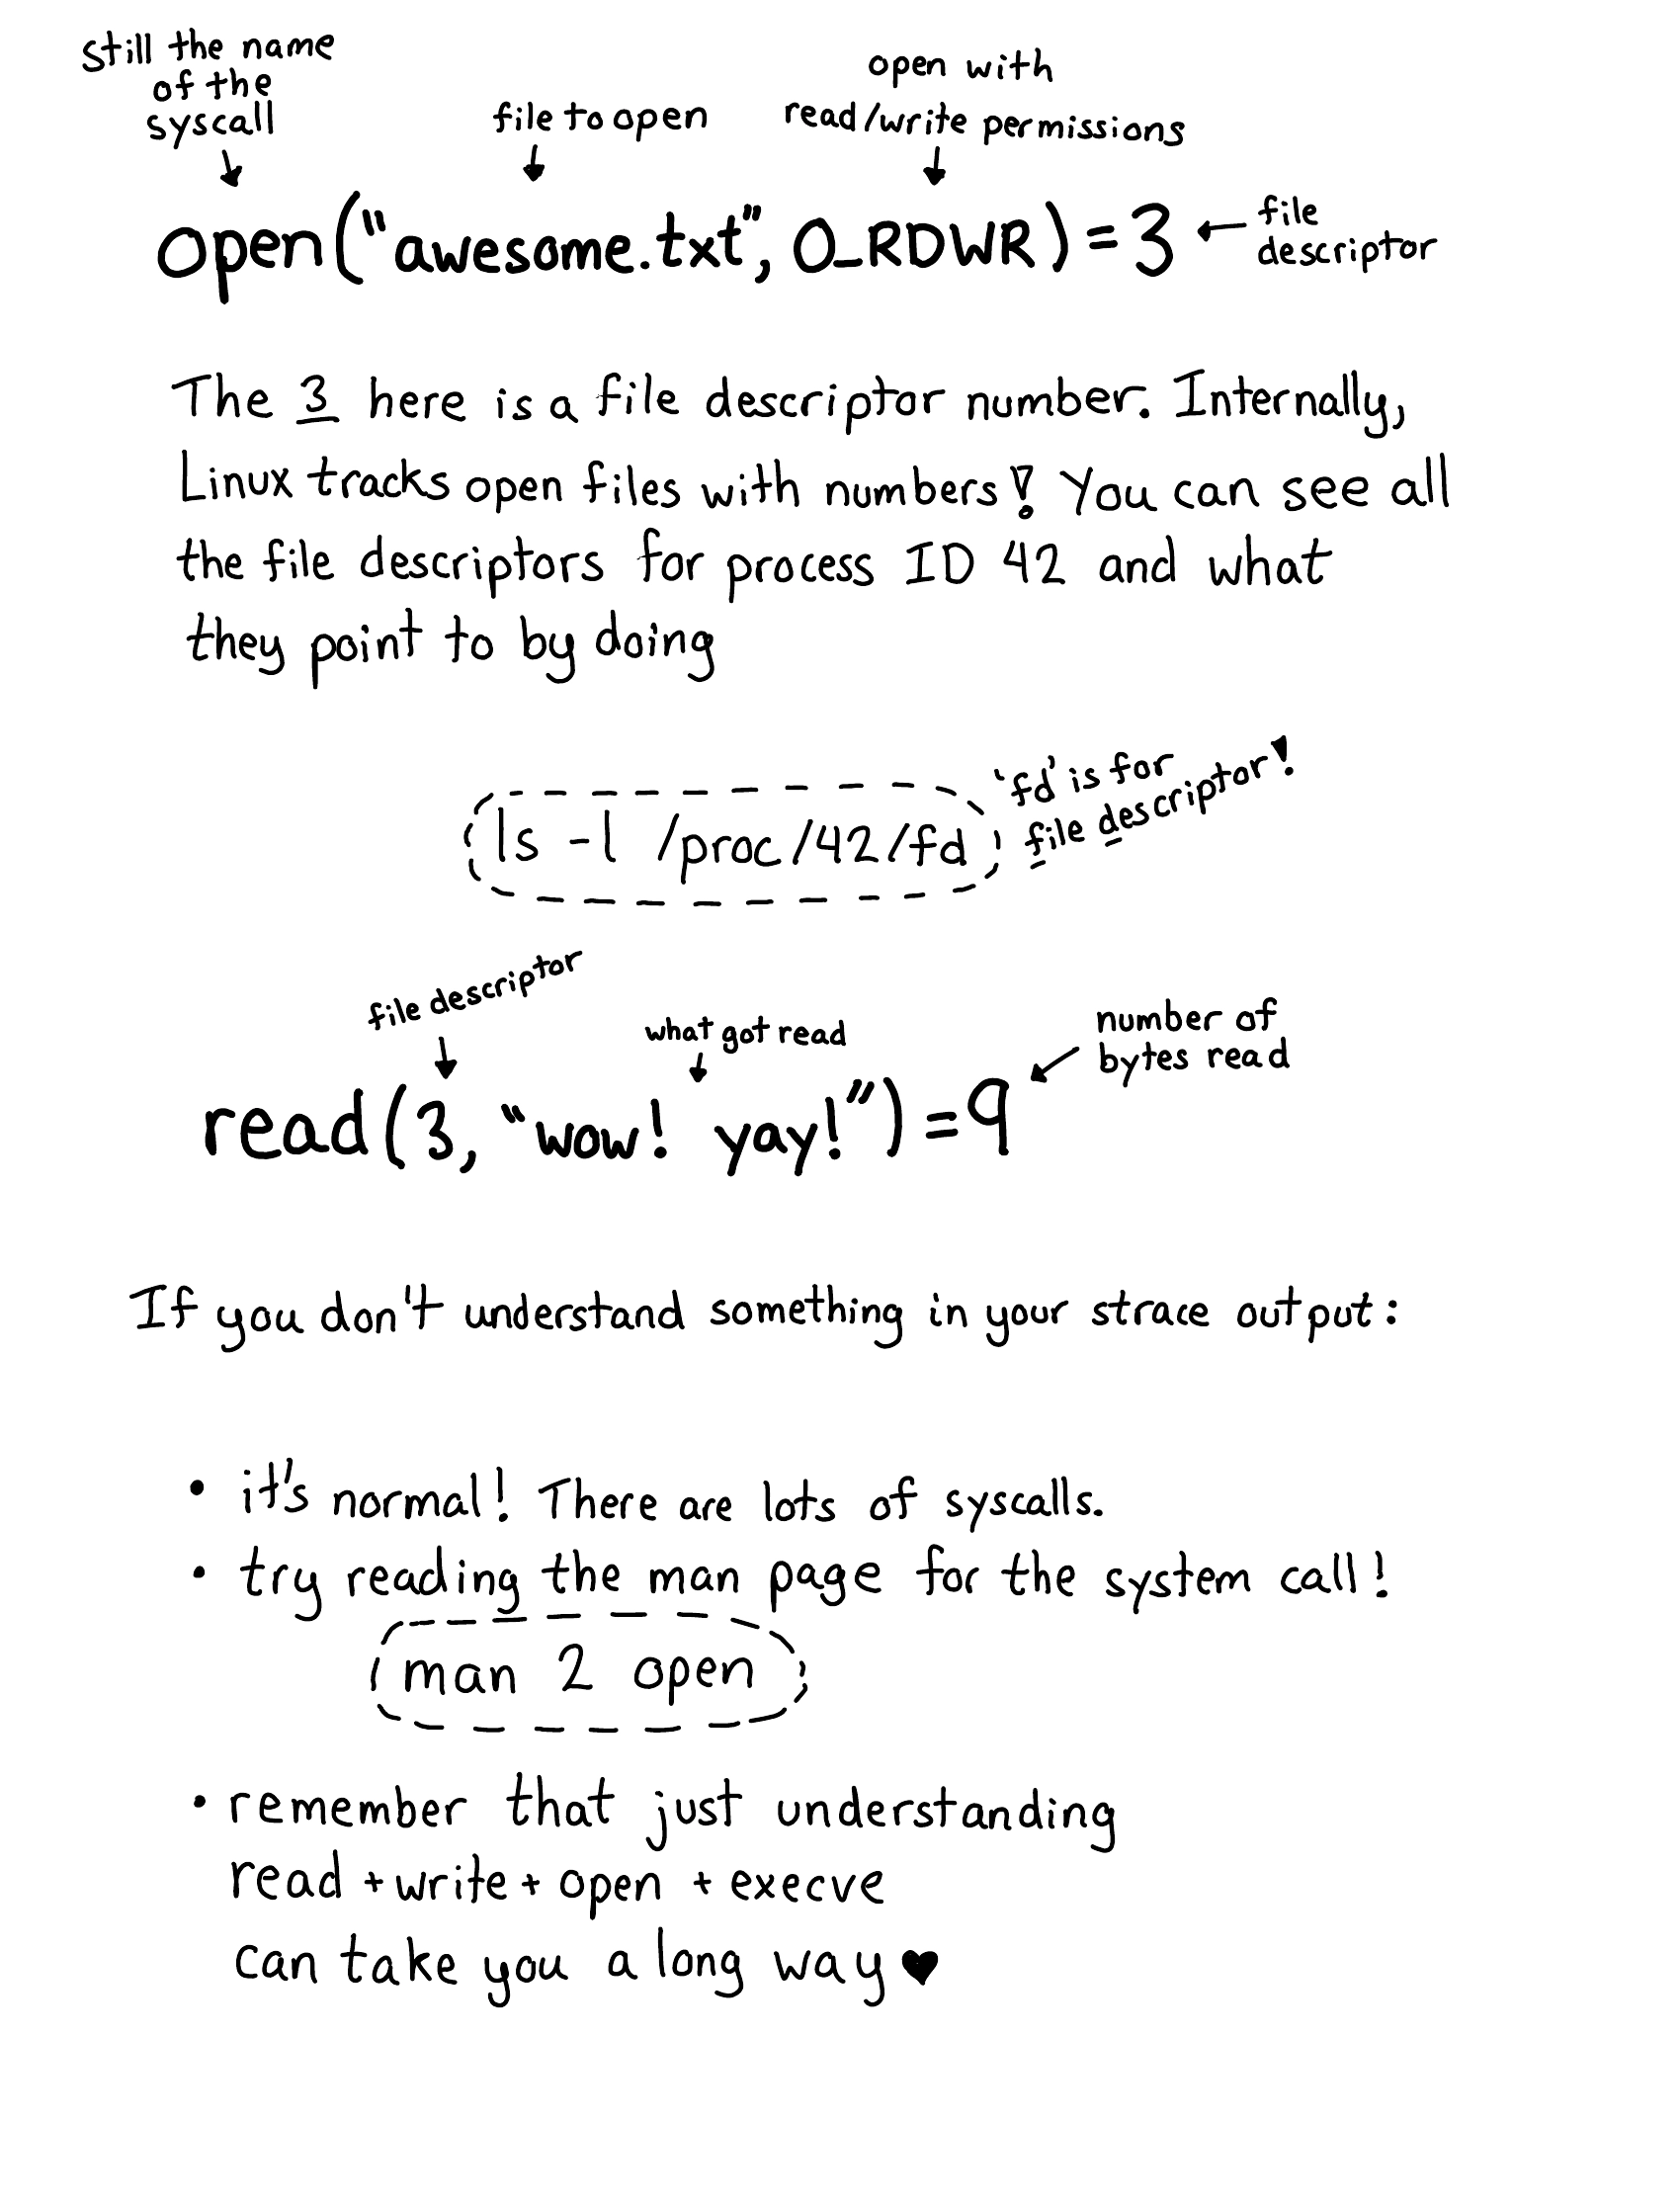 still the name
of the
syscall
file to open
open with
read/write permissions
open("awesome.txt", O_RDWR) = 3
file
descriptor
The 3 here is a file descriptor number. Internally,
Linux tracks open files with numbers! You can see all
the file descriptors for process ID 42 and what
they point to by doing
ls -l /proc/42/fd
'fd' is for
file descriptor!
file descriptor
what got read
number of
bytes read
read(3, "wow! yay!") = 9
If you don't understand something in your strace output:
• it's normal! There are lots of syscalls.
• try reading the man page for the system call!
man 2 open
• remember that just understanding
read + write + open + execve
can take you a long way ♥